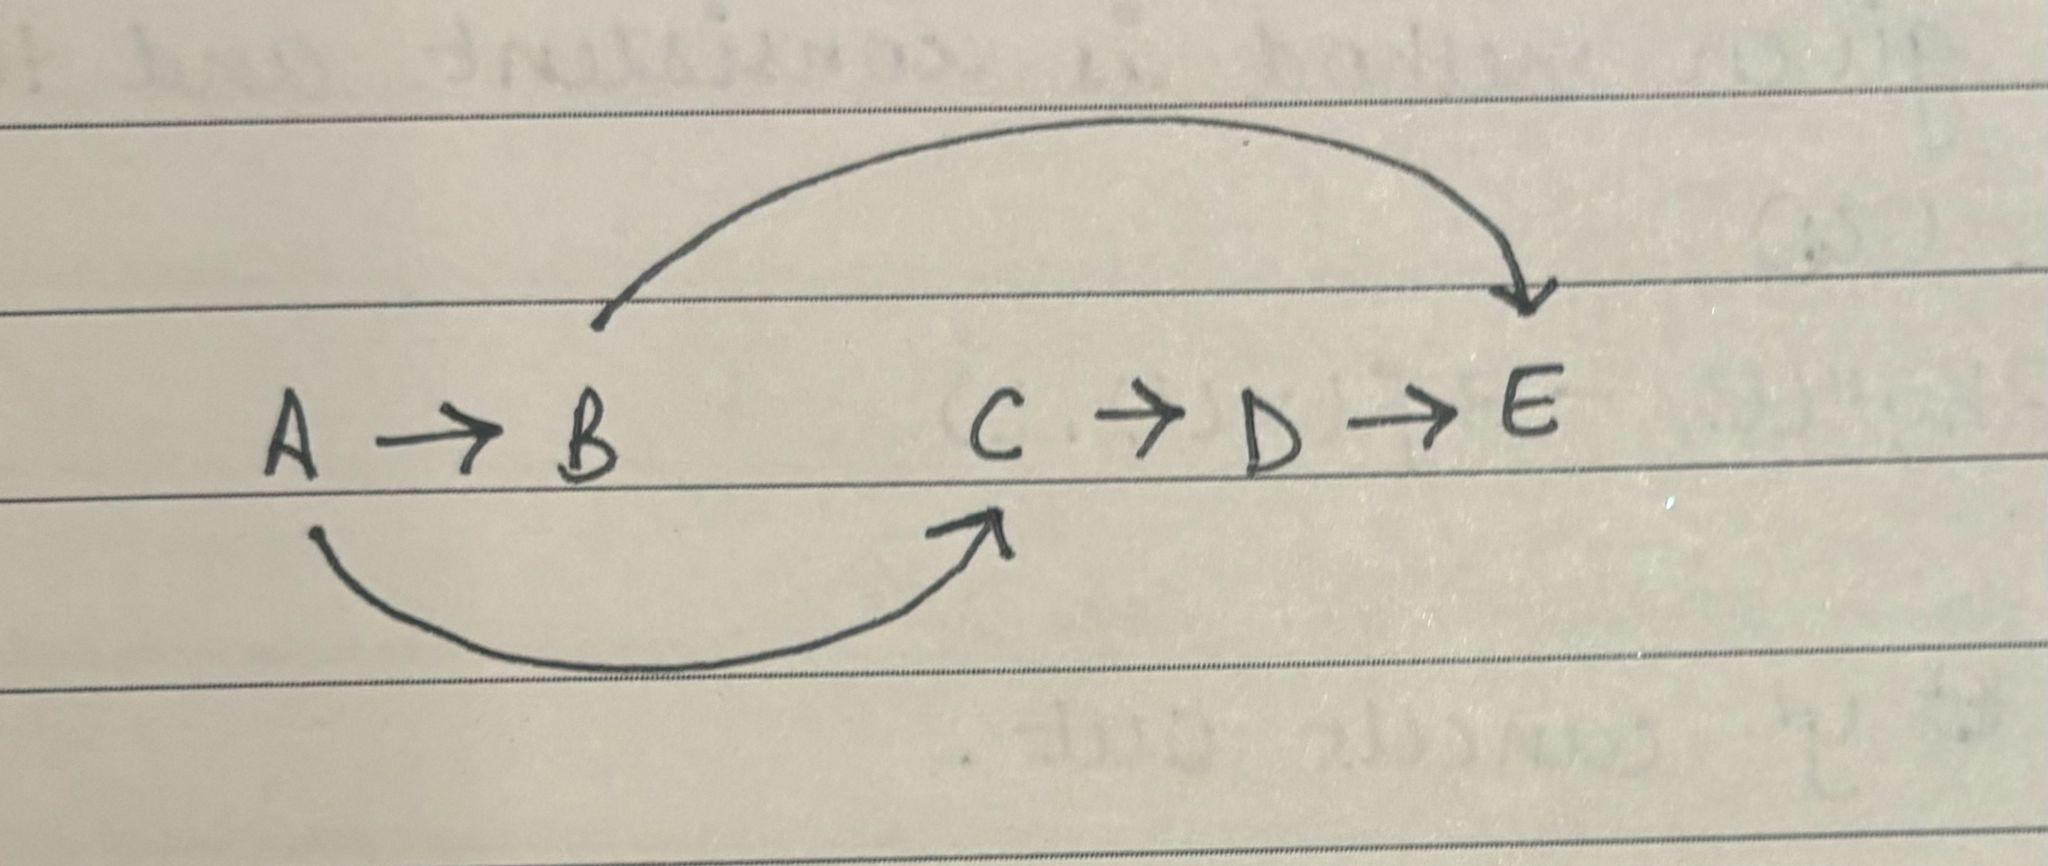 A → B C → D → E